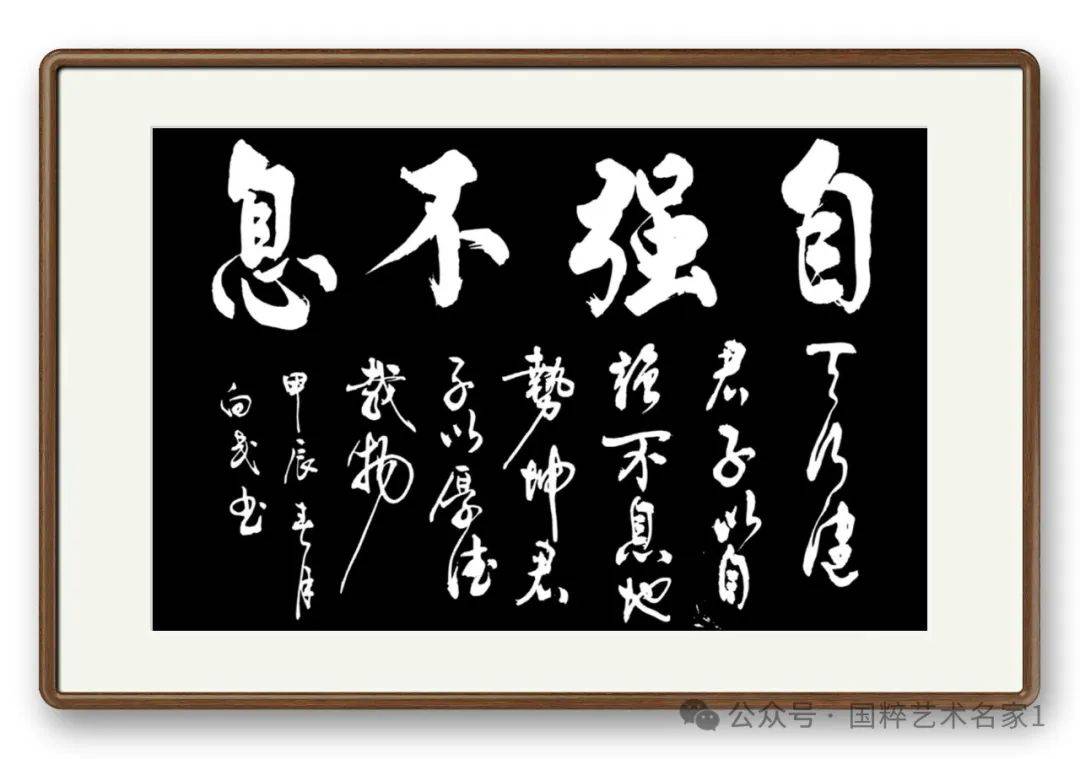 自强不息
天行健
君子以自
强不息地
勢坤君
子以厚德
载物
甲辰春月
向武书
公众号 · 国粹艺术名家1